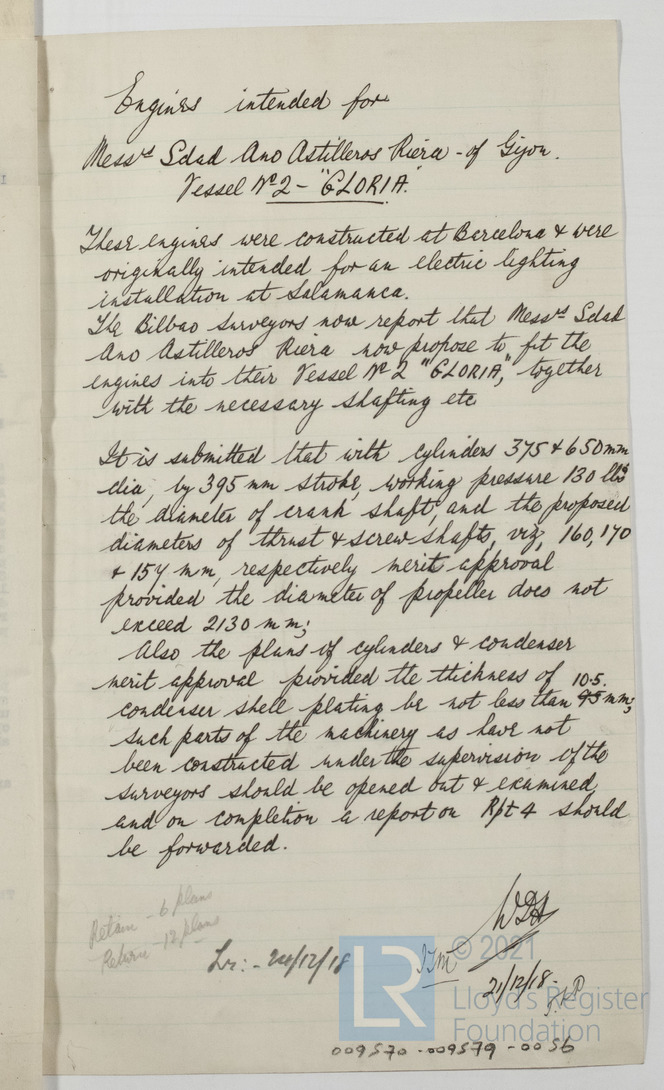 Engines intended for
Messrs Sdad Ano Astilleros Riera - of Gijon.
Vessel No 2 - "GLORIA."
These engines were constructed at Barcelona & were
originally intended for an electric lighting
installation at Salamanca.
The Bilbao Surveyors now report that Messrs Sdad
Ano Astilleros Riera now propose to fit the
engines into their Vessel No 2 "GLORIA", together
with the necessary shafting etc
It is submitted that with cylinders 375 & 650 mm
dia, by 395 mm stroke, working pressure 130 lbs
the diameter of crank shaft, and the proposed
diameters of thrust & screw shafts, viz, 160, 170
& 154 mm, respectively merit approval
provided the diameter of propeller does not
exceed 2130 mm;
Also the plans of cylinders & condenser
merit approval provided the thickness of 10.5.
condenser shell plating be not less than 95 mm;
such parts of the machinery as have not
been constructed under the supervision of the
surveyors should be opened out & examined,
and on completion a report on Rpt 4 should
be forwarded.
Retain - 6 plans
Return - 12 plans
Lr: - 24/12/18
21/12/18.
© 2021
Lloyd's Register
Foundation
LR
009570-009579-0056